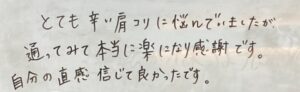 とても辛い肩コリに悩んでいましたが、
通ってみて本当に楽になり感謝です。
自分の直感 信じて良かったです。